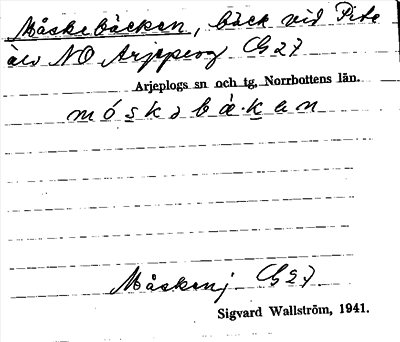 Måskebäcken, bäck vid Pite
älv NO Arjeplog C§27
Arjeplogs sn och tg, Norrbottens län.
m ó s k ə b ä · k e n
Måskenj. C§27.
Sigvard Wallström, 1941.